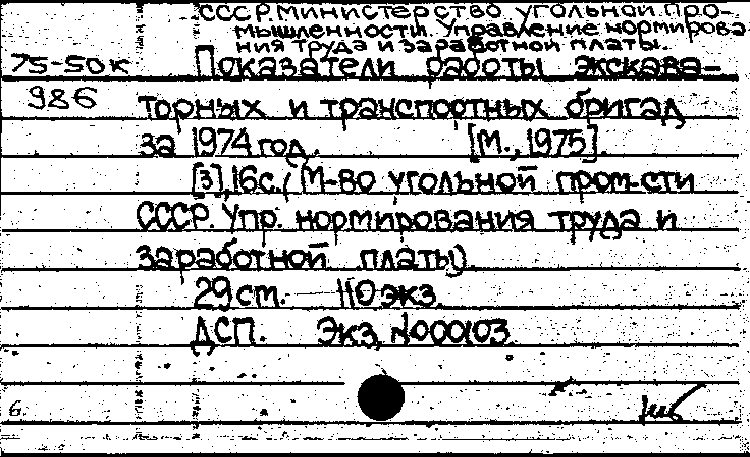 СССР. Министерство угольной про-
мышленности. Управление нормирова
ния труда и заработной платы.
75-50к Показатели работы экскава-
986 торных и транспортных бригад
за 1974 год. [М., 1975].
[3], 16 с. (М-во угольной пром-сти
СССР. Упр. нормирования труда и
заработной платы).
29 см. 110 экз.
ДСП. Экз. №000103
6.